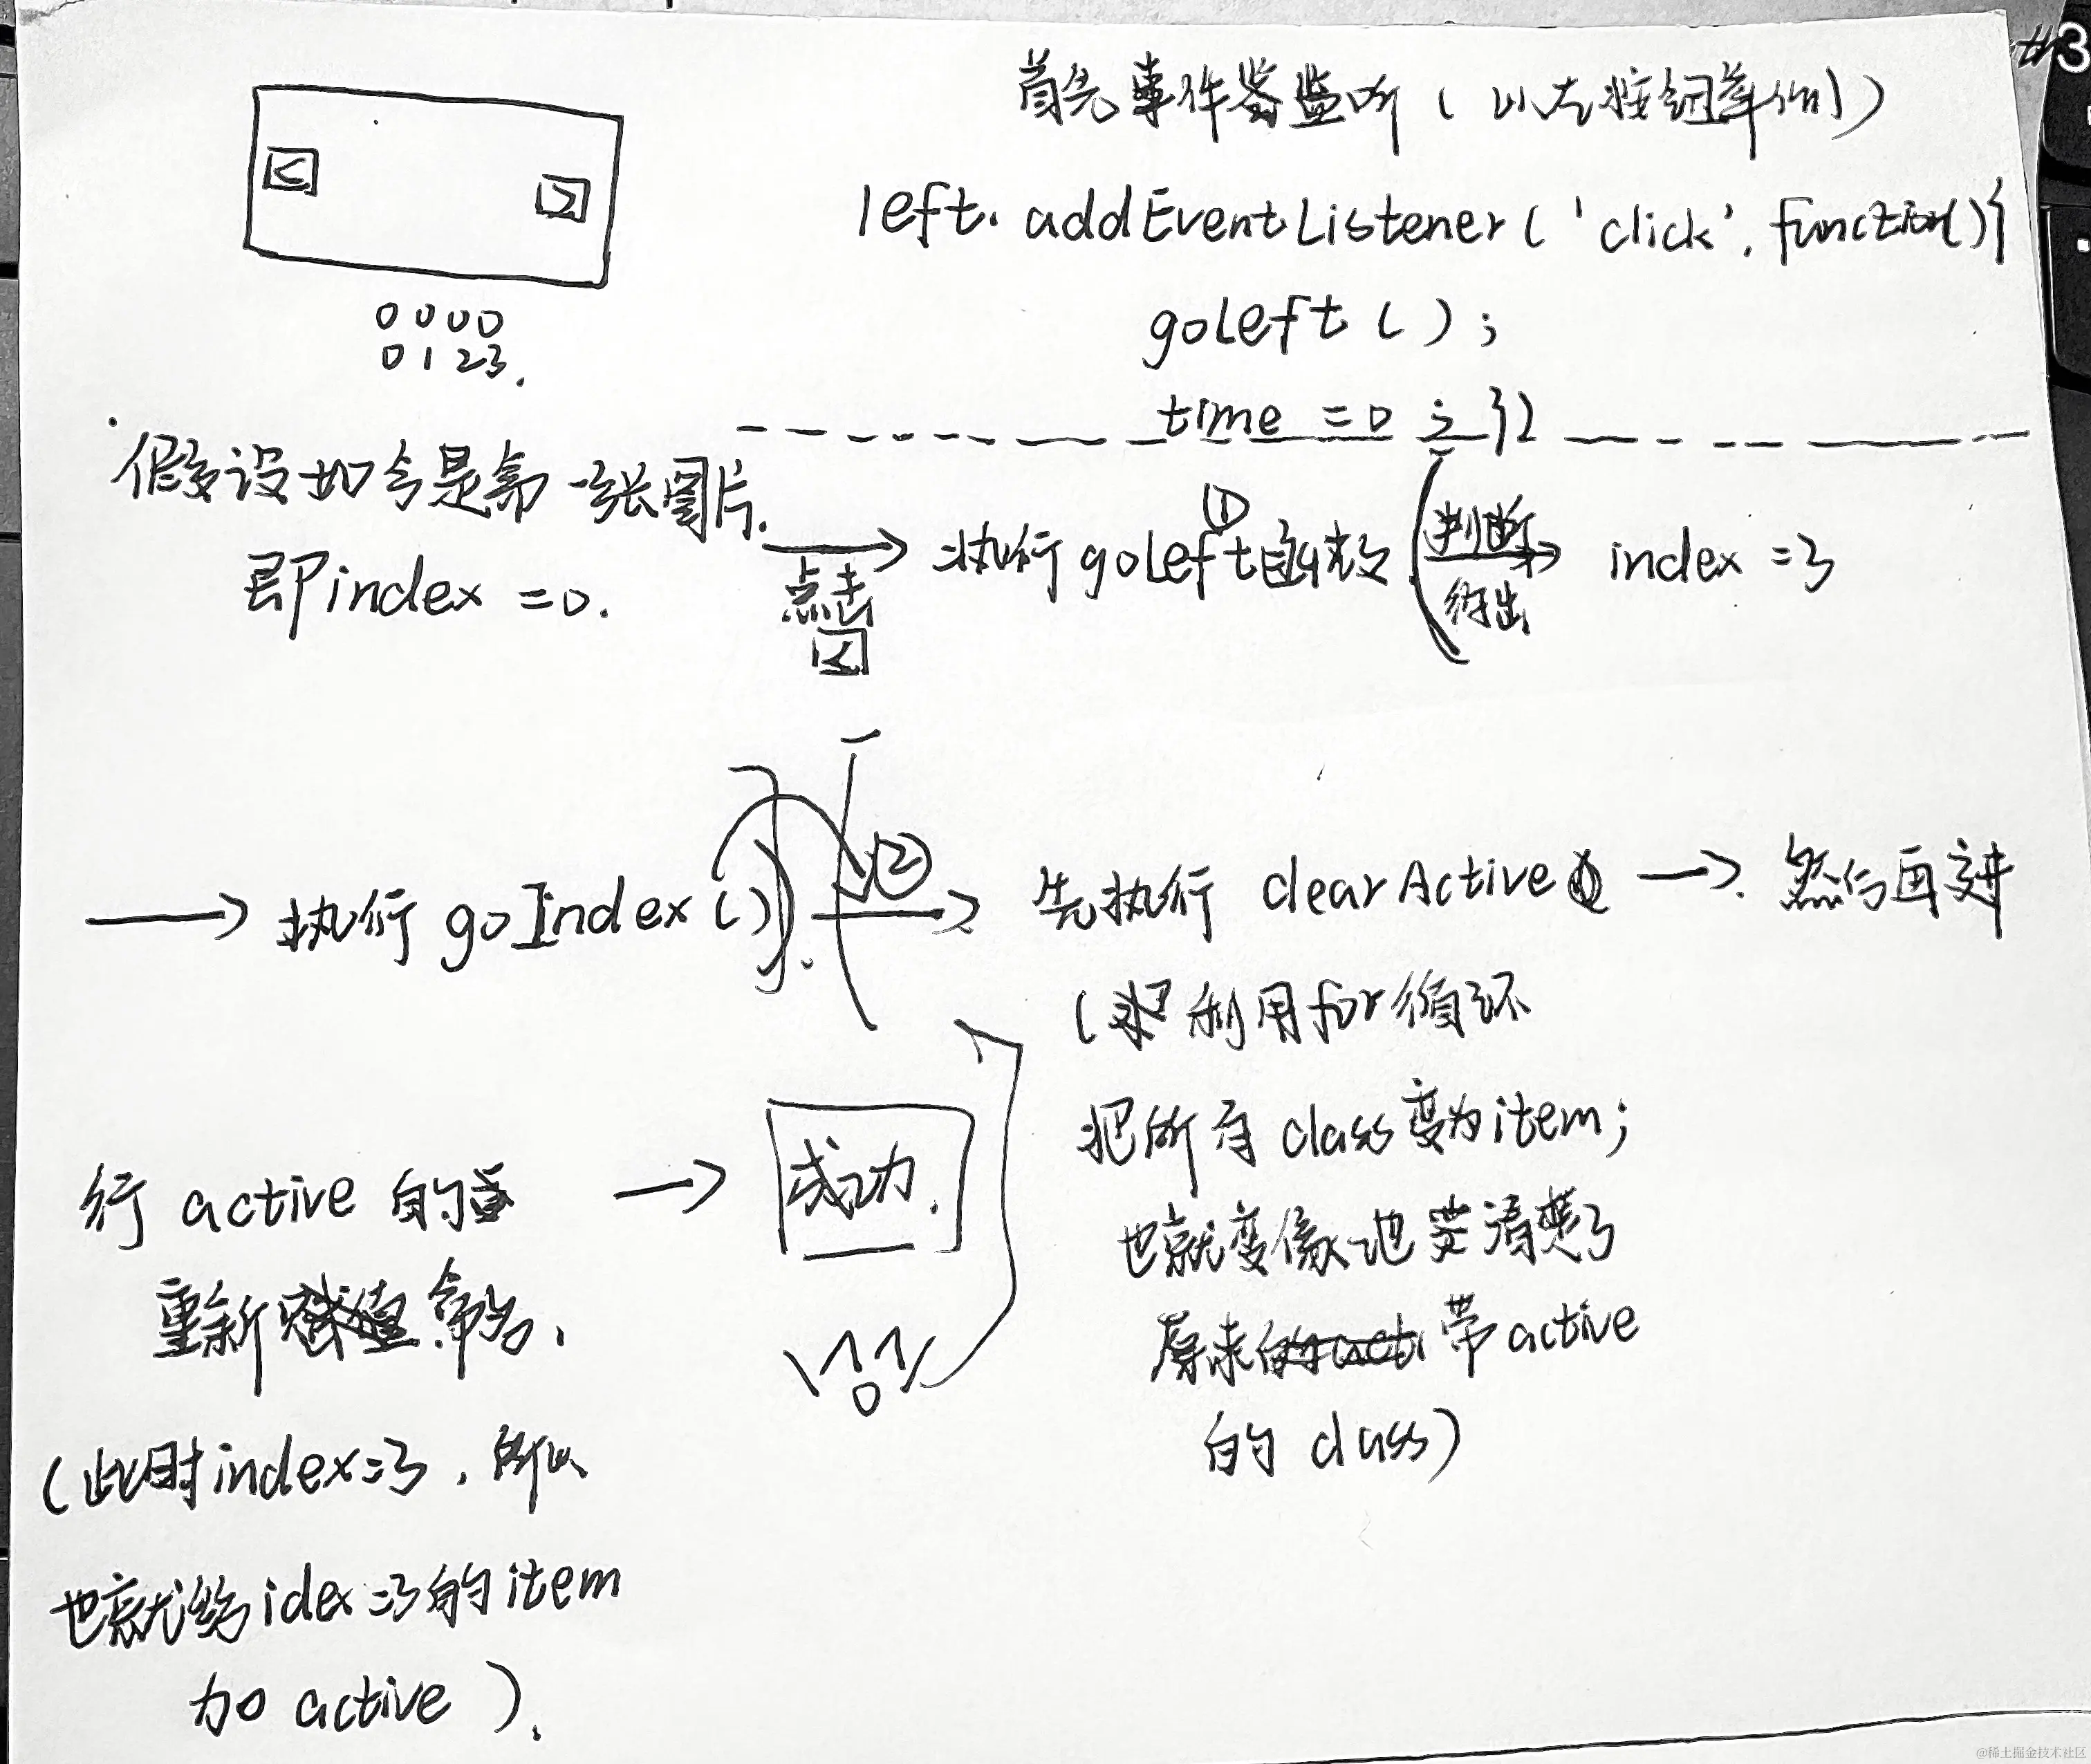 首先事件监听（以左按钮举例）
left.addEventListener('click',function(){
goleft();
time=0;})
<
>
0000
0123.
假设如今是第一张图片.
即index=0.
点击
<
①
执行goleft函数
判断
得出
index=3
→执行goIndex().
②
→先执行clearActive()→.然后再进
(利用for循环
把所有class变为item;
也就变像地清楚了
原来带active
的class)
行active的
重新
→成功.
(此时index=3,所以
也就给idex=3的item
加active).
#3
@稀土掘金技术社区